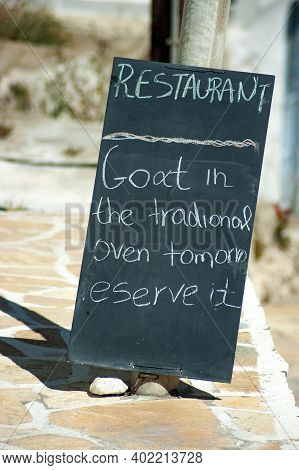 RESTAURANT
Goat in
the tradional
oven tomorro
eserve it